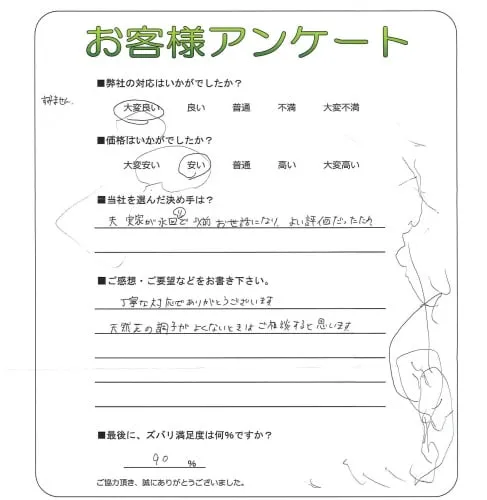 お客様アンケート
■弊社の対応はいかがでしたか？
すみません。
大変良い 良い 普通 不満 大変不満
■価格はいかがでしたか？
大変安い 安い 普通 高い 大変高い
■当社を選んだ決め手は？
夫 実家が水回りで以前 お世話になり、よい評価だったため
■ご感想・ご要望などをお書き下さい。
丁寧な対応でありがとうございます
の調子がよくないときは ご相談すると思います
■最後に、ズバリ満足度は何％ですか？
90 %
ご協力頂き、誠にありがとうございました。